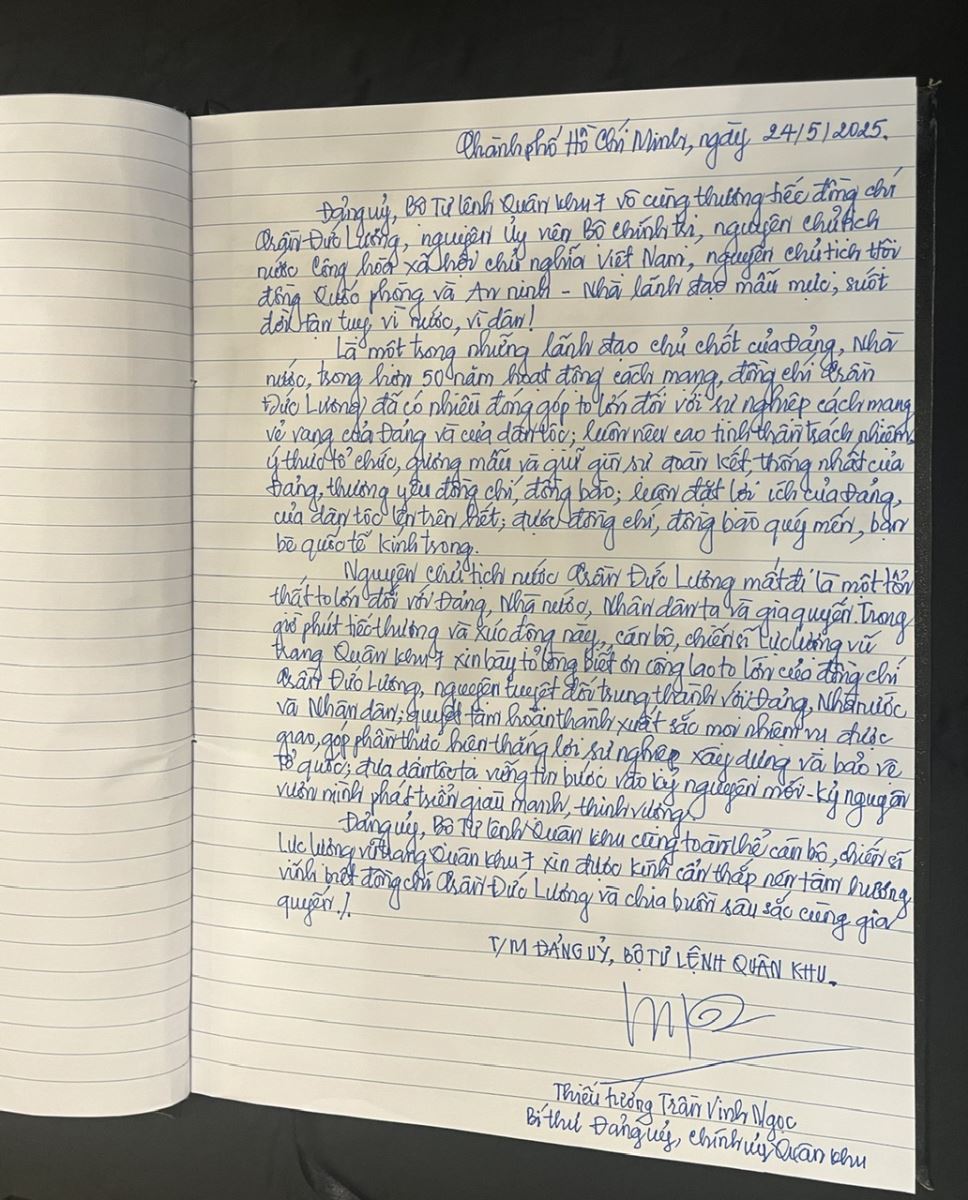 Thành phố Hồ Chí Minh, ngày 24/5/2025.
Đảng uỷ, Bộ Tư lệnh Quân khu 7 vô cùng thương tiếc đồng chí
Trần Đức Lương, nguyên Ủy viên Bộ chính trị, nguyên chủ tịch
nước Cộng hòa xã hội chủ nghĩa Việt Nam, nguyên chủ tịch Hội
đồng Quốc phòng và An ninh - Nhà lãnh đạo mẫu mực, suốt
đời tận tuỵ vì nước, vì dân!
Là một trong những lãnh đạo chủ chốt của Đảng, Nhà
nước, trong hơn 50 năm hoạt động cách mạng, đồng chí Trần
Đức Lương đã có nhiều đóng góp to lớn đối với sự nghiệp cách mạng
vẻ vang của Đảng và của dân tộc; luôn nêu cao tinh thần trách nhiệm,
ý thức tổ chức, gương mẫu và giữ gìn sự đoàn kết, thống nhất của
Đảng, thương yêu đồng chí, đồng bào; luôn đặt lợi ích của Đảng,
của dân tộc lên trên hết; được đồng chí, đồng bào quý mến, bạn
bè quốc tế kính trọng.
Nguyên chủ tịch nước Trần Đức Lương mất đi là một tổn
thất to lớn đối với Đảng, Nhà nước, Nhân dân ta và gia quyến. Trong
giờ phút tiếc thương và xúc động này, cán bộ, chiến sĩ Lực lượng vũ
trang Quân khu 7 xin bày tỏ lòng biết ơn công lao to lớn của đồng chí
Trần Đức Lương, nguyện tuyệt đối trung thành với Đảng, Nhà nước
và Nhân dân; quyết tâm hoàn thành xuất sắc mọi nhiệm vụ được
giao, góp phần thực hiện thắng lợi sự nghiệp xây dựng và bảo vệ
tổ quốc; đưa dân tộc ta vững tin bước vào kỷ nguyên mới - kỷ nguyên
vươn mình phát triển giàu mạnh, thịnh vượng.
Đảng uỷ, Bộ Tư lệnh Quân khu cùng toàn thể cán bộ, chiến sĩ
Lực lượng vũ trang Quân khu 7 xin được kính cẩn thắp nén tâm hương
vĩnh biệt đồng chí Trần Đức Lương và chia buồn sâu sắc cùng gia
quyến./.
T/M ĐẢNG UỶ, BỘ TƯ LỆNH QUÂN KHU.
Thiếu tướng Trần Vinh Ngọc
Bí thư Đảng uỷ, chính uỷ Quân khu